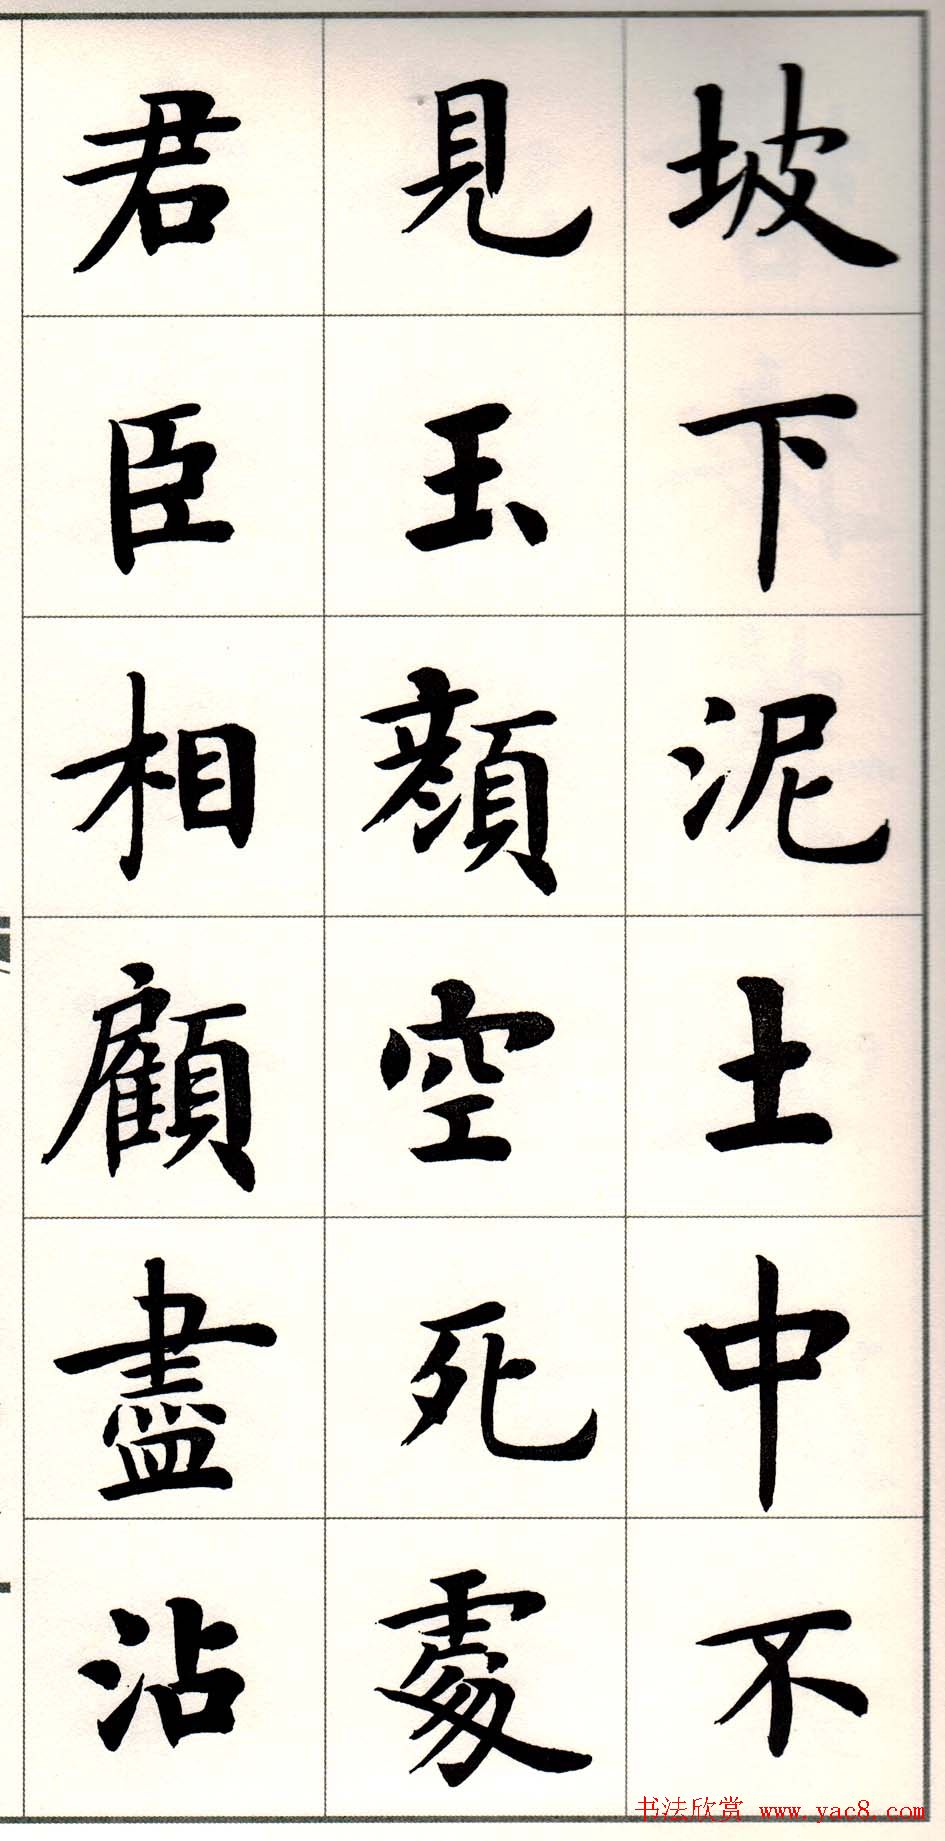 坡下泥土中不
見玉顏空死處
君臣相顧盡沾
书法欣赏 www.yac8.com